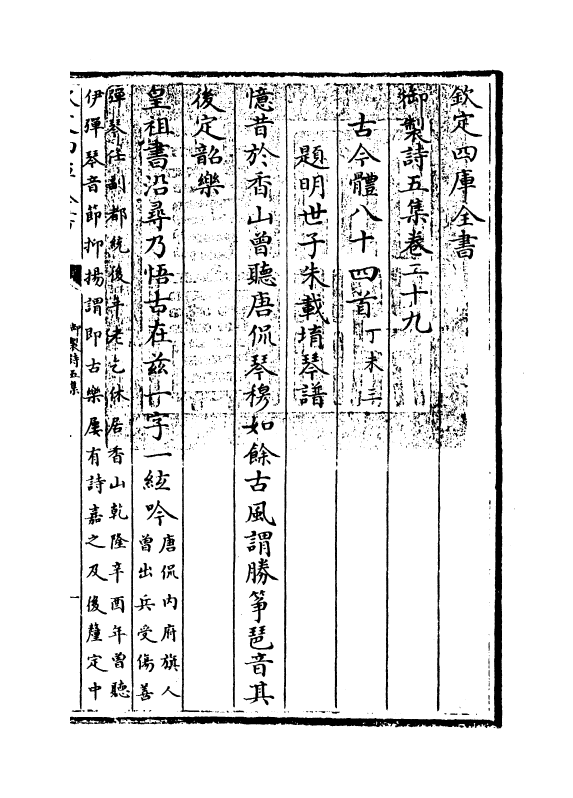 欽定四庫全書
御製詩五集卷二十九
古今體八十四首丁未三
題明世子朱載堉琴譜
憶昔於香山曾聽唐侃琴穆如餘古風謂勝箏琶音其
後定韶樂
皇祖書沿尋乃悟古在兹一字一絃吟唐侃内府旗人
曾出兵受傷善
彈琴任副都統後年老乞休居香山乾隆辛酉年曾聽
伊彈琴音節抑揚謂即古樂屢有詩嘉之及後釐定中
御製詩五集
一